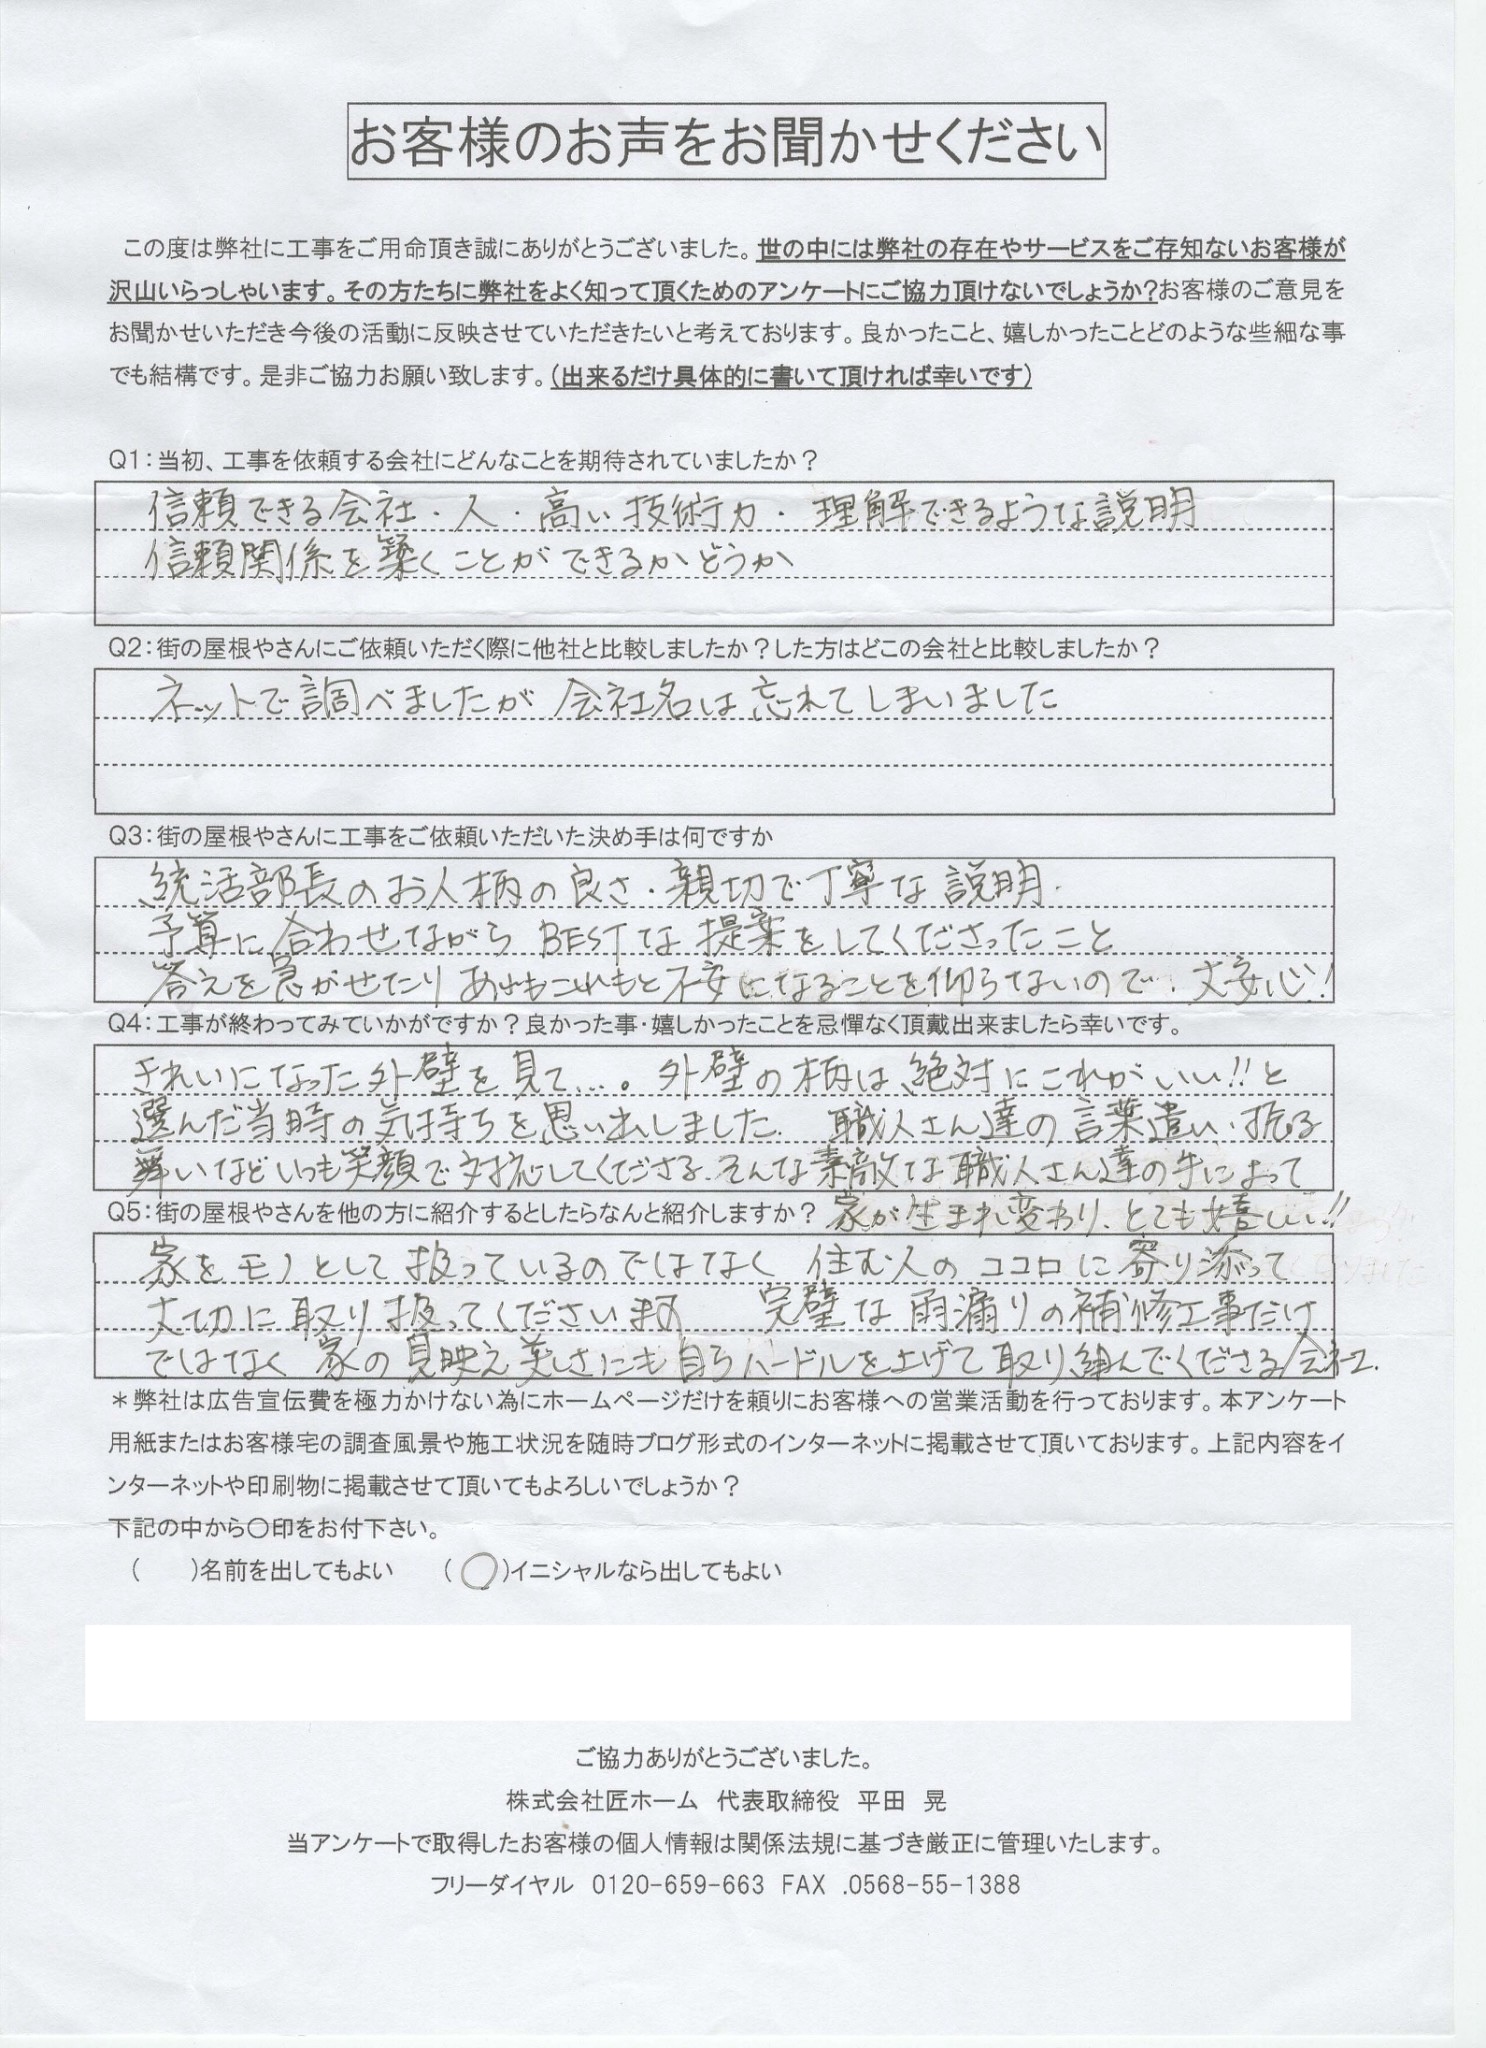 お客様のお声をお聞かせください
この度は弊社に工事をご用命頂き誠にありがとうございました。世の中には弊社の存在やサービスをご存知ないお客様が
沢山いらっしゃいます。その方たちに弊社をよく知って頂くためのアンケートにご協力頂けないでしょうか?お客様のご意見を
お聞かせいただき今後の活動に反映させていただきたいと考えております。良かったこと、嬉しかったことどのような些細な事
でも結構です。是非ご協力お願い致します。(出来るだけ具体的に書いて頂ければ幸いです)
Q1:当初、工事を依頼する会社にどんなことを期待されていましたか?
信頼できる会社・人・高い技術力・理解できるような説明
信頼関係を築くことができるかどうか
Q2:街の屋根やさんにご依頼いただく際に他社と比較しましたか?した方はどこの会社と比較しましたか?
ネットで調べましたが 会社名は忘れてしまいました
Q3:街の屋根やさんに工事をご依頼いただいた決め手は何ですか
統活部長のお人柄の良さ・親切で丁寧な説明.
予算に合わせながらBESTな提案をしてくださったこと
答えを急がせたりあれもこれもと不安になることを仰らないので、大安心!
Q4:工事が終わってみていかがですか?良かった事・嬉しかったことを忌憚なく頂戴出来ましたら幸いです。
きれいになった外壁を見て…。外壁の柄は絶対にこれがいい!!と
選んだ当時の気持ちを思い出しました. 職人さん達の言葉遣い、振る
舞いなどいつも笑顔で対応してくださる、そんな素敵な職人さん達の手によって
Q5:街の屋根やさんを他の方に紹介するとしたらなんと紹介しますか? 家が生まれ変わり、とても嬉しい!!
家をモノとして扱っているのではなく 住む人のココロに寄り添って
大切に取り扱ってくださいます 完璧な雨漏りの補修工事だけ
ではなく 家の見映え美しさにも自らハードルを上げて取り組んでくださる会社.
*弊社は広告宣伝費を極力かけない為にホームページだけを頼りにお客様への営業活動を行っております。本アンケート
用紙またはお客様宅の調査風景や施工状況を随時ブログ形式のインターネットに掲載させて頂いております。上記内容をイ
ンターネットや印刷物に掲載させて頂いてもよろしいでしょうか?
下記の中から〇印をお付下さい。
( )名前を出してもよい (〇)イニシャルなら出してもよい
ご協力ありがとうございました。
株式会社匠ホーム 代表取締役 平田 晃
当アンケートで取得したお客様の個人情報は関係法規に基づき厳正に管理いたします。
フリーダイヤル 0120-659-663 FAX .0568-55-1388